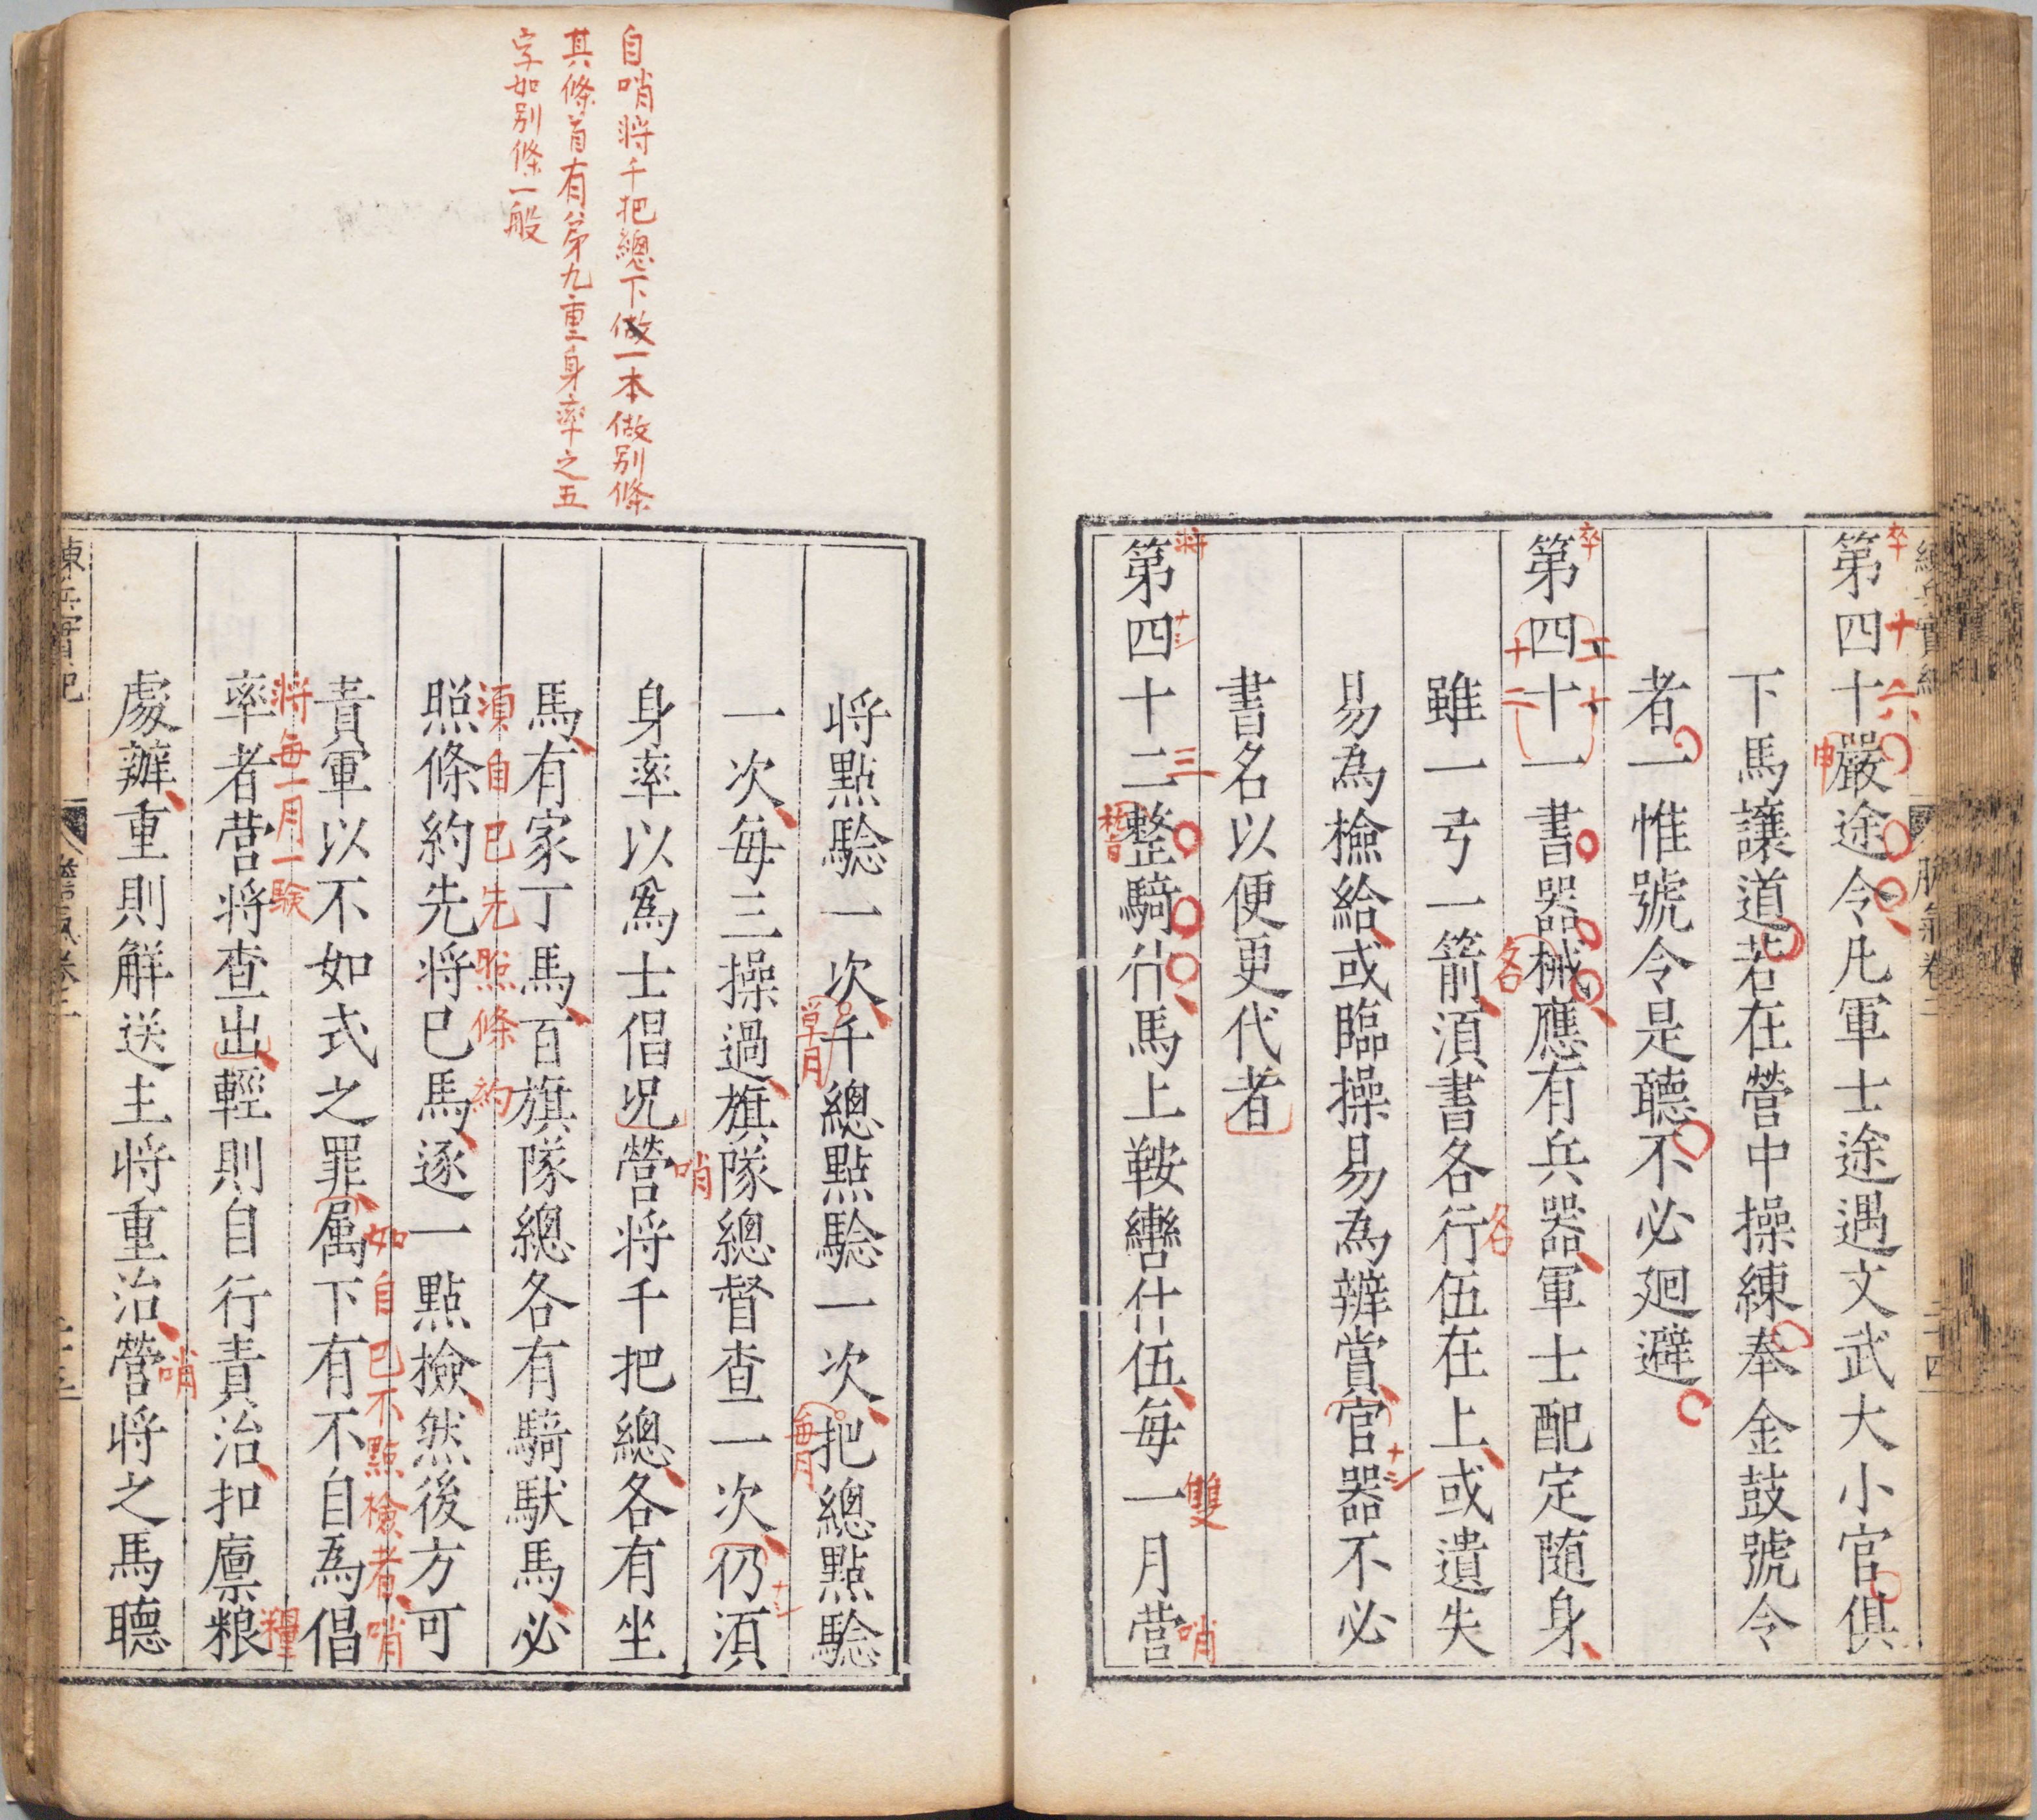 第四十嚴途令凡軍士途遇文武大小官俱
下馬讓道若在營中操練奉金鼓號令
者一惟號令是聽不必廻避
第四十一書器械應有兵器軍士配定随身
雖一弓一箭湏書各行伍在上或遺失
易為撿給或臨操易為辦賞官器不必
書名以便更代者
第四十二整騎什馬上鞍轡什伍每一月營
将點驗一次千總點驗一次把總點驗
一次每三操過旗隊總督查一次仍湏
身率以為士倡况營将千把總各有坐
馬有家丁馬百旗隊總各有騎馱馬必
照條約先将已馬逐一點撿然後方可
責軍以不如式之罪属下有不自為倡
率者营将查出輕則自行責治扣廩粮
處辦重則解送主将重治營将之馬聽
卒
十六
申
卒
二十
十二
各
各
將
三
㫼
雙
哨
單月
每月
哨
湏自已先照條約
如自已不點檢者哨
將每一月一驗
糧
哨
自哨將千把總下做一本做别條
其條首有第九重身率之五
字如别條一般